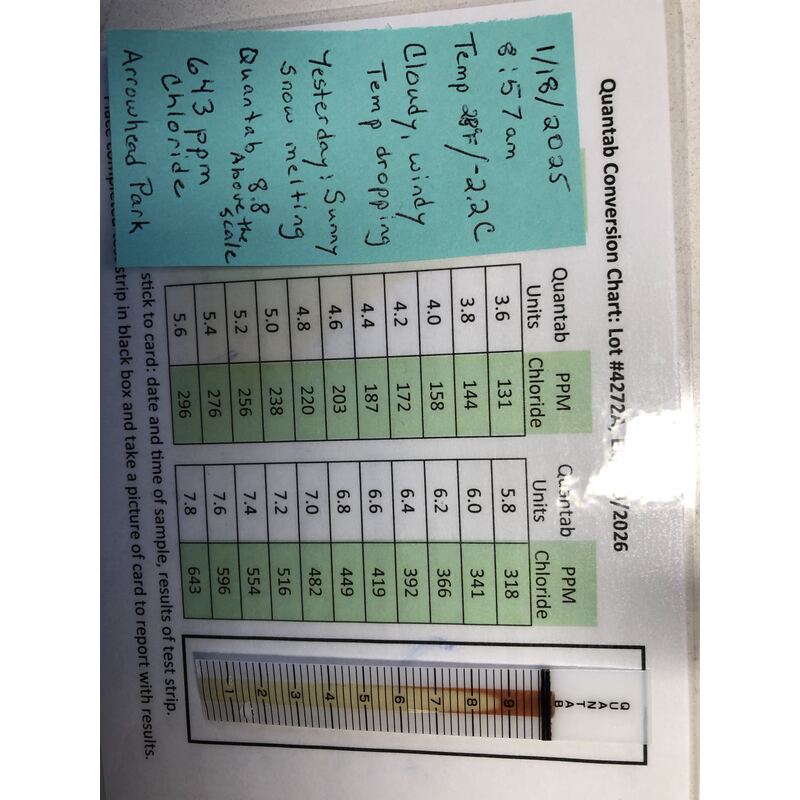 Quantab Conversion Chart: Lot #4272A, /2026
1/18/2025
8:57am
Temp 28°F/-2.2C
Cloudy, windy
Temp dropping
Yesterday: Sunny
Snow melting
Quantab 8.8
Above the
scale
643 ppm
Chloride
Arrowhead Park
Quantab PPM
Units Chloride
3.6 131
3.8 144
4.0 158
4.2 172
4.4 187
4.6 203
4.8 220
5.0 238
5.2 256
5.4 276
5.6 296
Quantab PPM
Units Chloride
5.8 318
6.0 341
6.2 366
6.4 392
6.6 419
6.8 449
7.0 482
7.2 516
7.4 554
7.6 596
7.8 643
QUANTAB
9
8
7
6
5
4
3
2
1
stick to card: date and time of sample, results of test strip.
Place completed test strip in black box and take a picture of card to report with results.